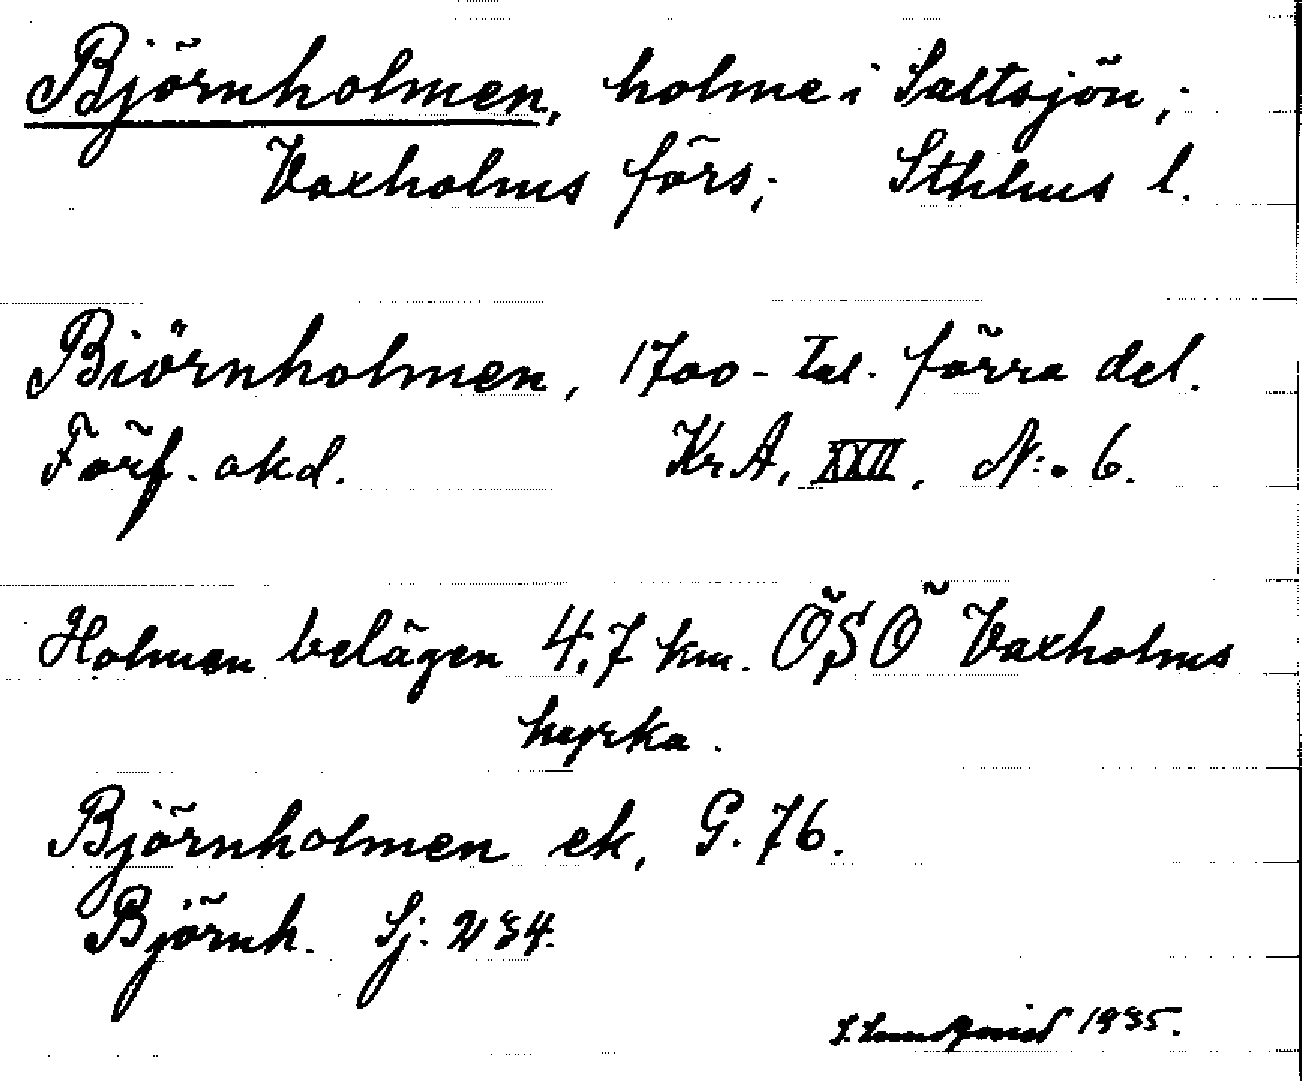 Björnholmen, holme i Saltsjön;
Vaxholms förs; Sthlms l.
Biörnholmen, 1700-tal. förra del.
Förf. okd. KrA, XXII, N:o 6.
Holmen belägen 4,7 km. ÖSÖ Vaxholms
kyrka.
Björnholmen ek, G. 76.
Björnh. Sj. 234.
Lundqvist 1935.